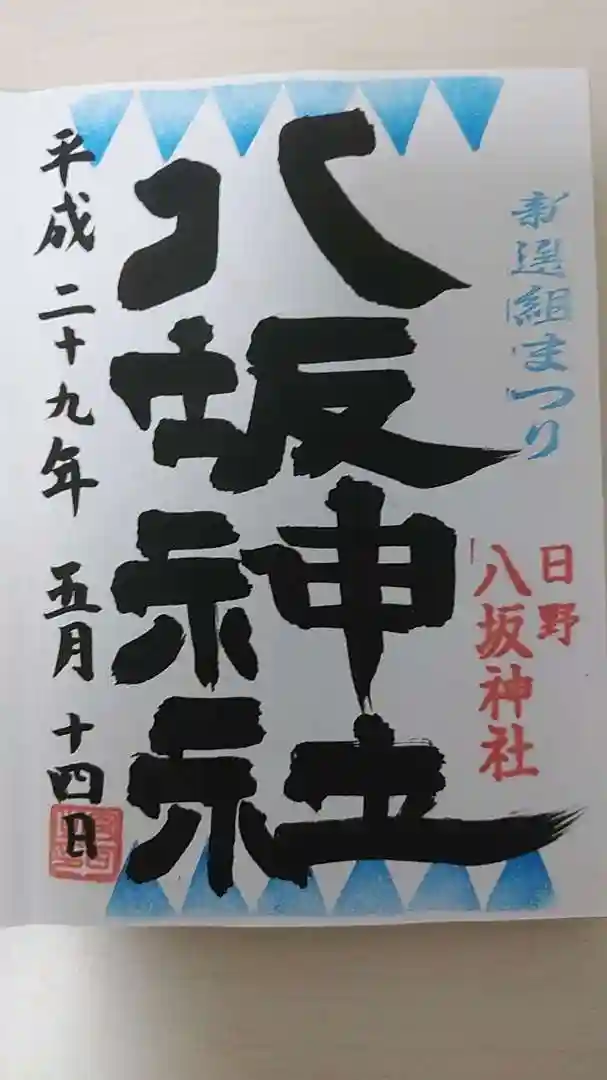 新選組まつり
日野
八坂神社
八坂神社
平成二十九年五月十四日